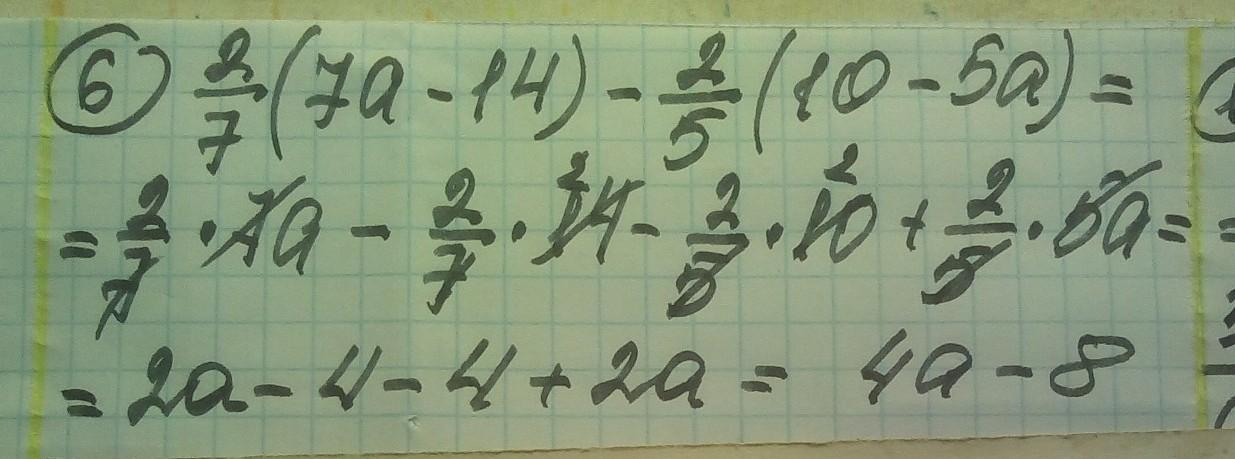 ⑥ 2/7 (7a - 14) - 2/5 (10 - 5a) =
= 2/7 · 7a - 2/7 · 14 2 - 2/5 · 10 2 + 2/5 · 5a = =
= 2a - 4 - 4 + 2a = 4a - 8